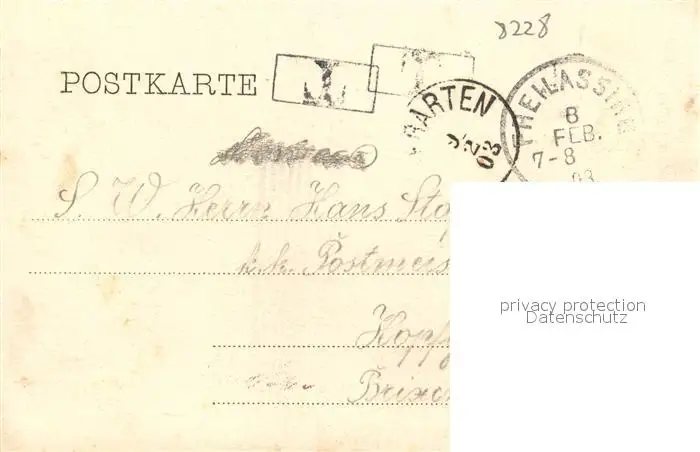 8228
POSTKARTE T T
GARTEN 9/2 03
FREILASSING 8 FEB. 7-8 03
S. W. Herrn Hans Sto
k. k. Postmeis
Hopfg
Brixe
privacy protection
Datenschutz